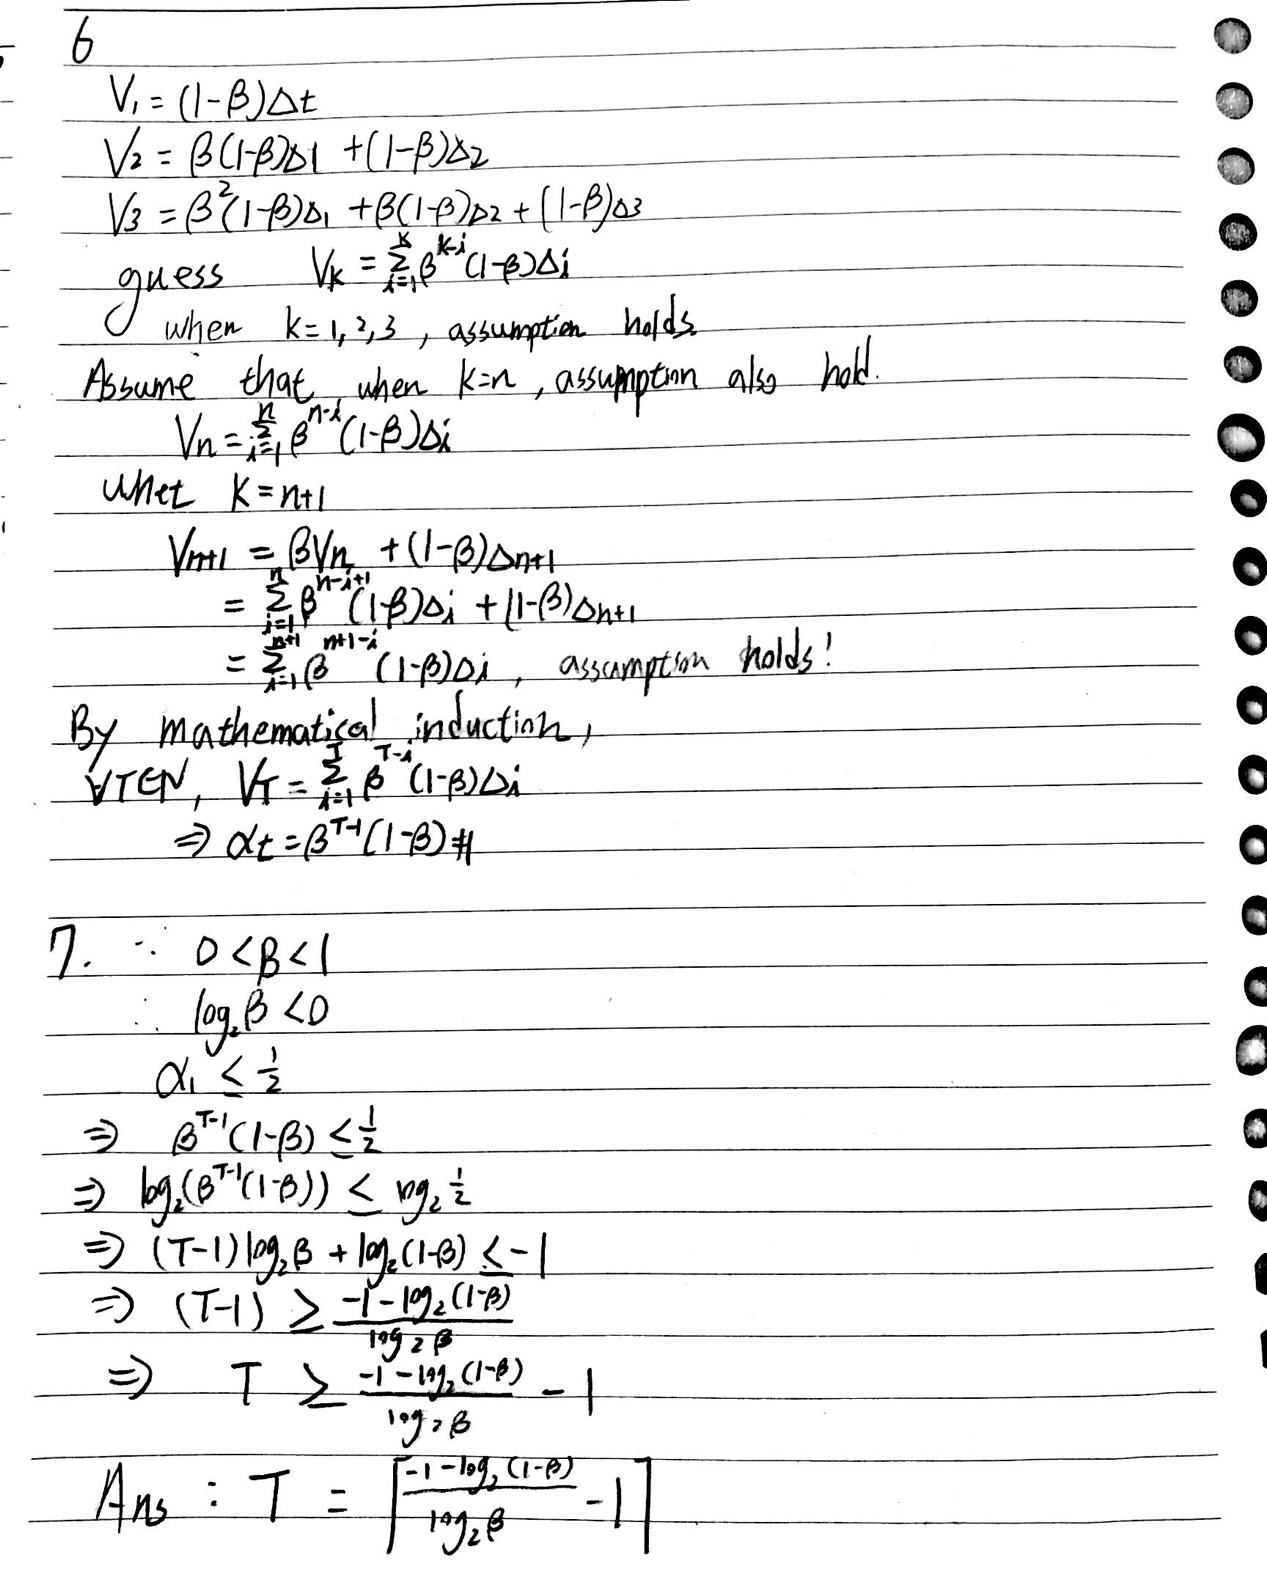 6
V₁ = (1-β)Δt
V₂ = β(1-β)Δ1 + (1-β)Δ2
V3 = β²(1-β)Δ₁ + β(1-β)Δ2 + (1-β)Δ3
guess Vk = Σ_{i=1}^{k} β^{k-i} (1-β)Δi
when k=1,2,3, assumption holds.
Assume that when k=n, assumption also hold.
Vn = Σ_{i=1}^{n} β^{n-i} (1-β)Δi
whet k=n+1
Vn+1 = βVn + (1-β)Δn+1
= Σ_{i=1}^{n} β^{n-i+1} (1-β)Δi + (1-β)Δn+1
= Σ_{i=1}^{n+1} β^{n+1-i} (1-β)Δi, assumption holds!
By mathematical induction,
∀T∈N, VT = Σ_{i=1}^{T} β^{T-i} (1-β)Δi
⇒ αt = β^{T-1}(1-β)#
7. ∵ 0<β<1
∴ log₂β <0
α₁ ≤ 1/2
⇒ β^{T-1}(1-β) ≤ 1/2
⇒ log₂(β^{T-1}(1-β)) ≤ log₂ 1/2
⇒ (T-1)log₂β + log₂(1-β) ≤ -1
⇒ (T-1) ≥ (-1-log₂(1-β))/(log₂β)
⇒ T ≥ (-1-log₂(1-β))/(log₂β) - 1
Ans : T = ⌈(-1-log₂(1-β))/(log₂β) - 1⌉